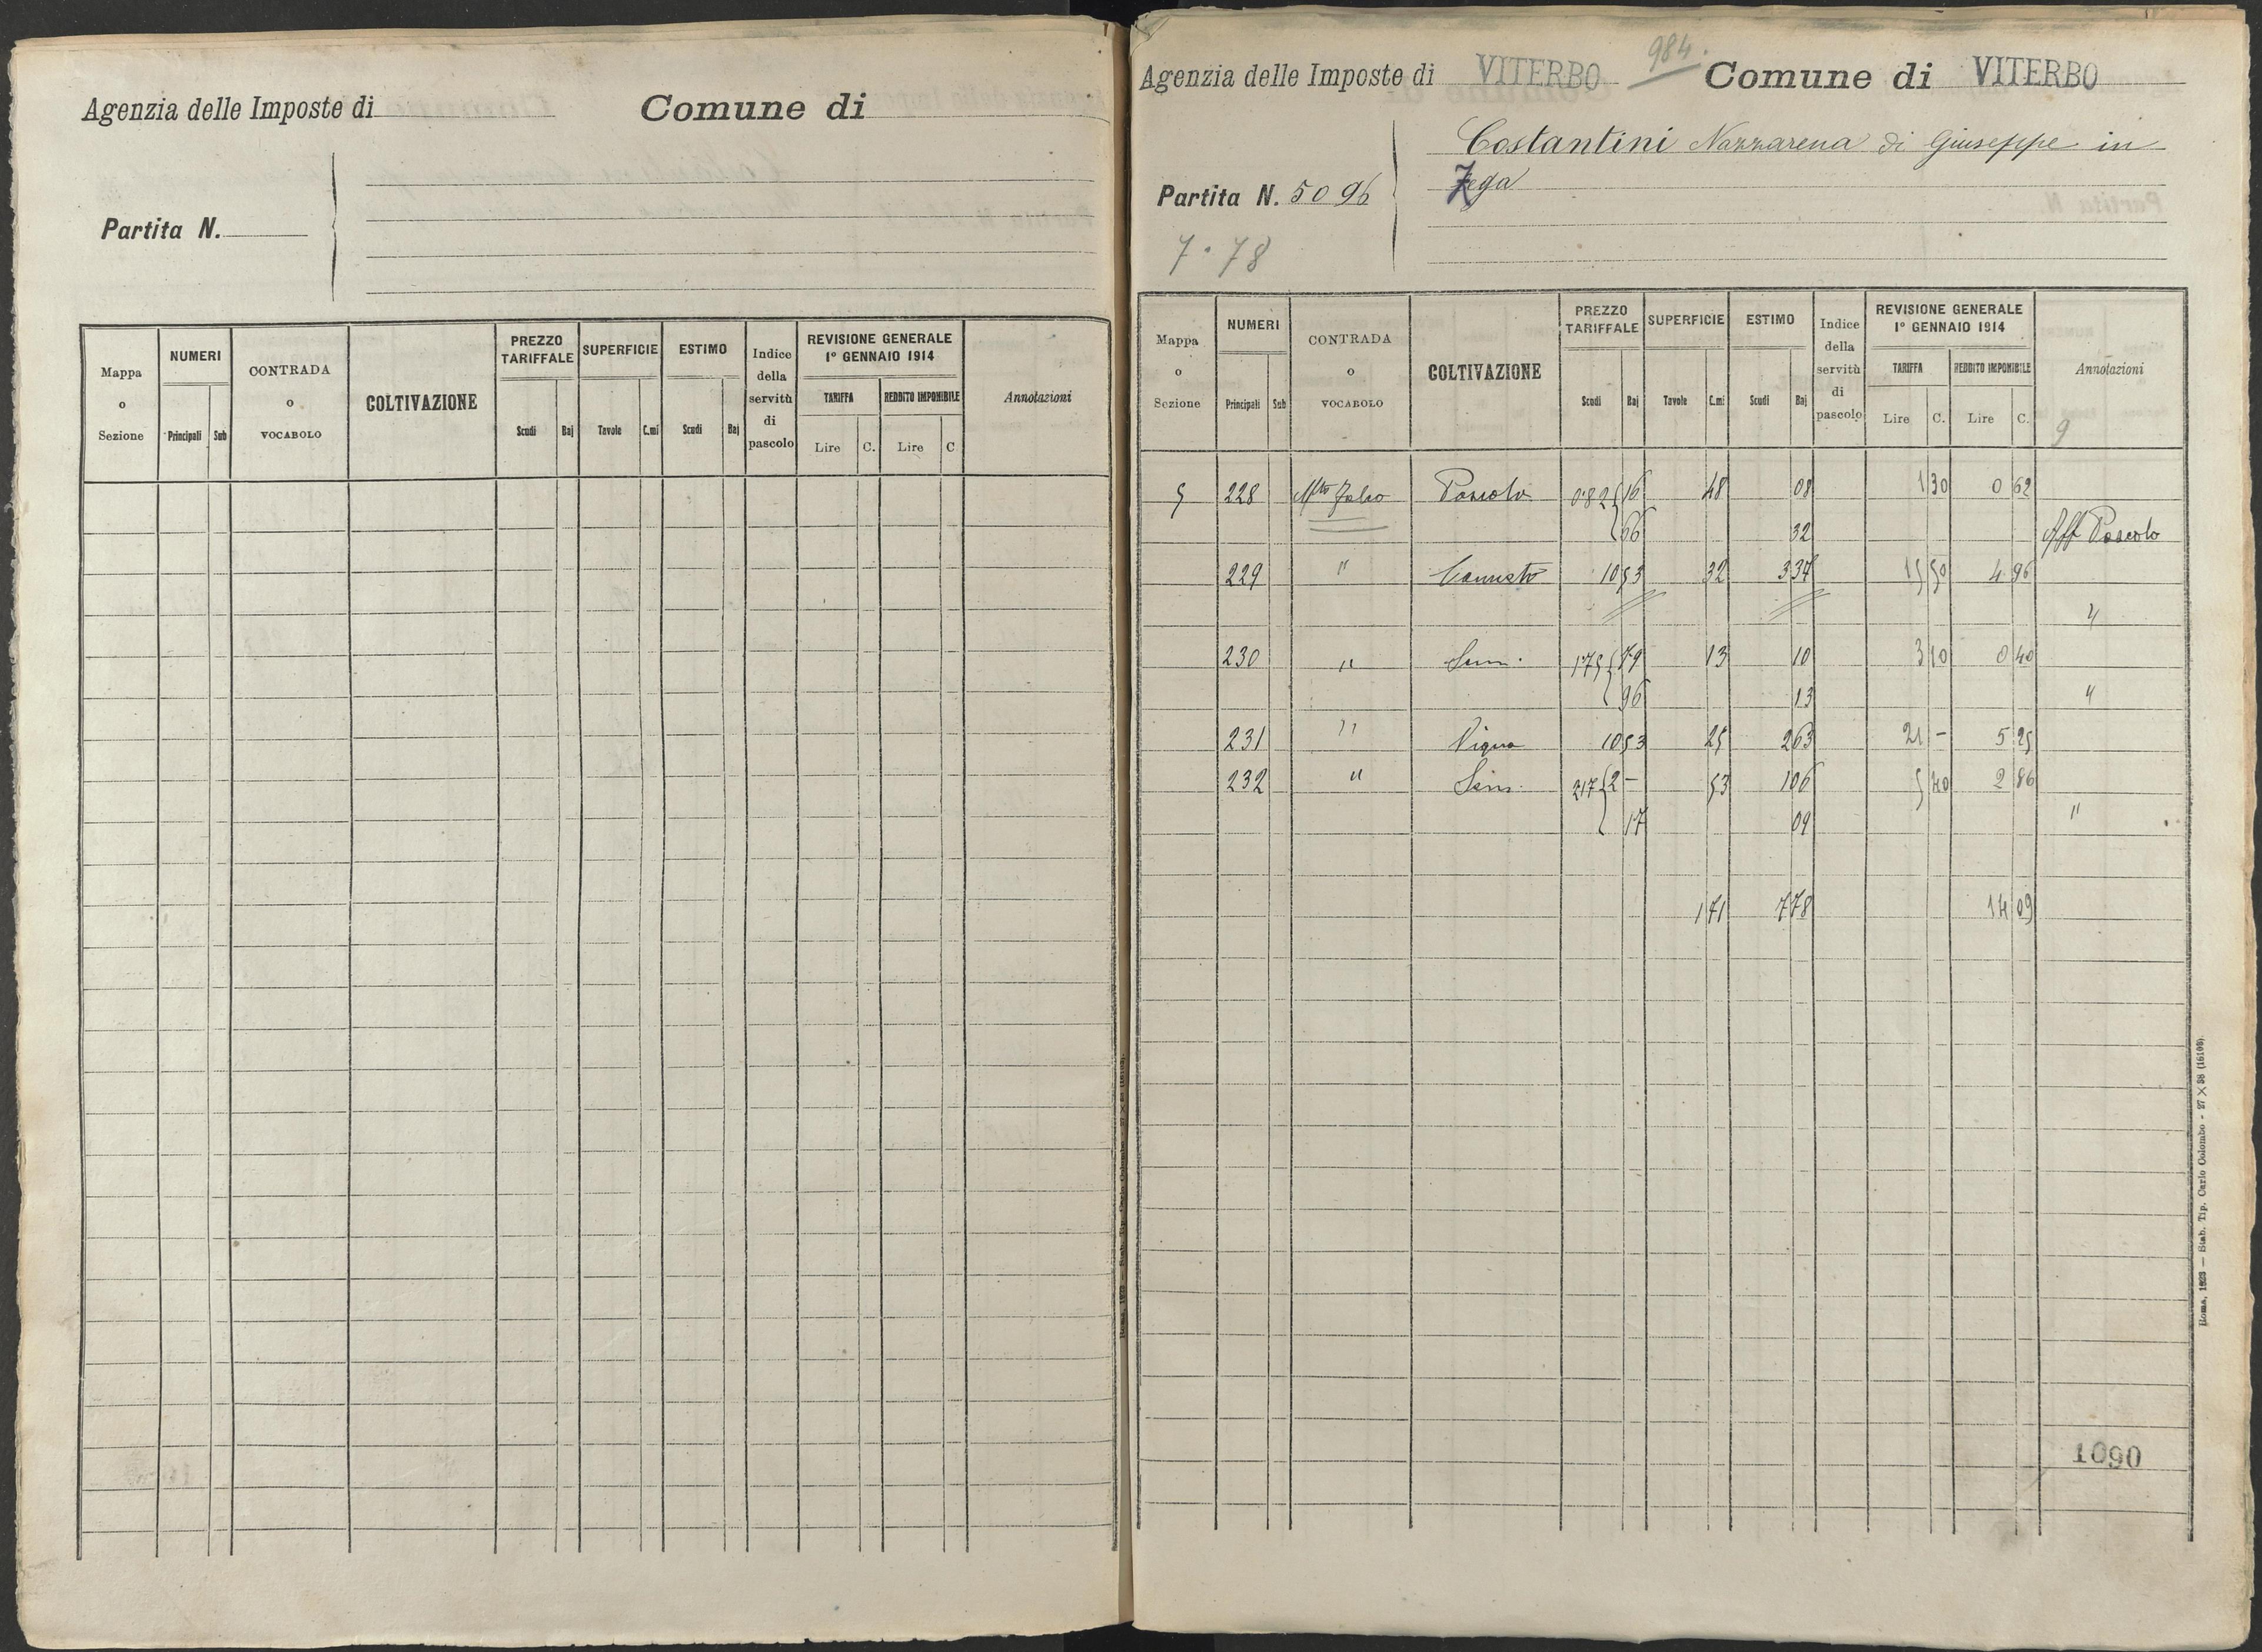 Agenzia delle Imposte di
Comune di
Partita N.
Mappa o Sezione
NUMERI
Principali Sub
CONTRADA o VOCABOLO
COLTIVAZIONE
PREZZO TARIFFALE
Scudi Baj
SUPERFICIE
Tavole C.mi
ESTIMO
Scudi Baj
Indice della servitù di pascolo
REVISIONE GENERALE
1° GENNAIO 1914
TARIFFA REDDITO IMPONIBILE
Lire C. Lire C
Annotazioni
984.
Agenzia delle Imposte di VITERBO Comune di VITERBO
Costantini Nazzarena di Giuseppe in
Zega
Partita N. 5096
7.78
Mappa o Sezione
NUMERI
Principali Sub
CONTRADA o VOCABOLO
COLTIVAZIONE
PREZZO TARIFFALE
Scudi Baj
SUPERFICIE
Tavole C.mi
ESTIMO
Scudi Baj
Indice della servitù di pascolo
REVISIONE GENERALE
1° GENNAIO 1914
TARIFFA REDDITO IMPONIBILE
Lire C. Lire C.
Annotazioni
9
5 228 Pascolo 0.82 { 16 48 08 1 30 0 62
66 32 Aff Pascolo
229 " Canneto 10 53 32 3 37 15 50 4 96
"
230 " Sem. 1.75 { 79 13 10 3 10 0 40
96 13 "
231 " Vigna 10 53 25 2 63 21 - 5 25
232 " Sem. 217 { 2 - 53 1 06 5 40 2 86
17 09 "
1 71 7 78 14 09
1090
Roma, 1923 — Stab. Tip. Carlo Colombo - 27 × 38 (16108).